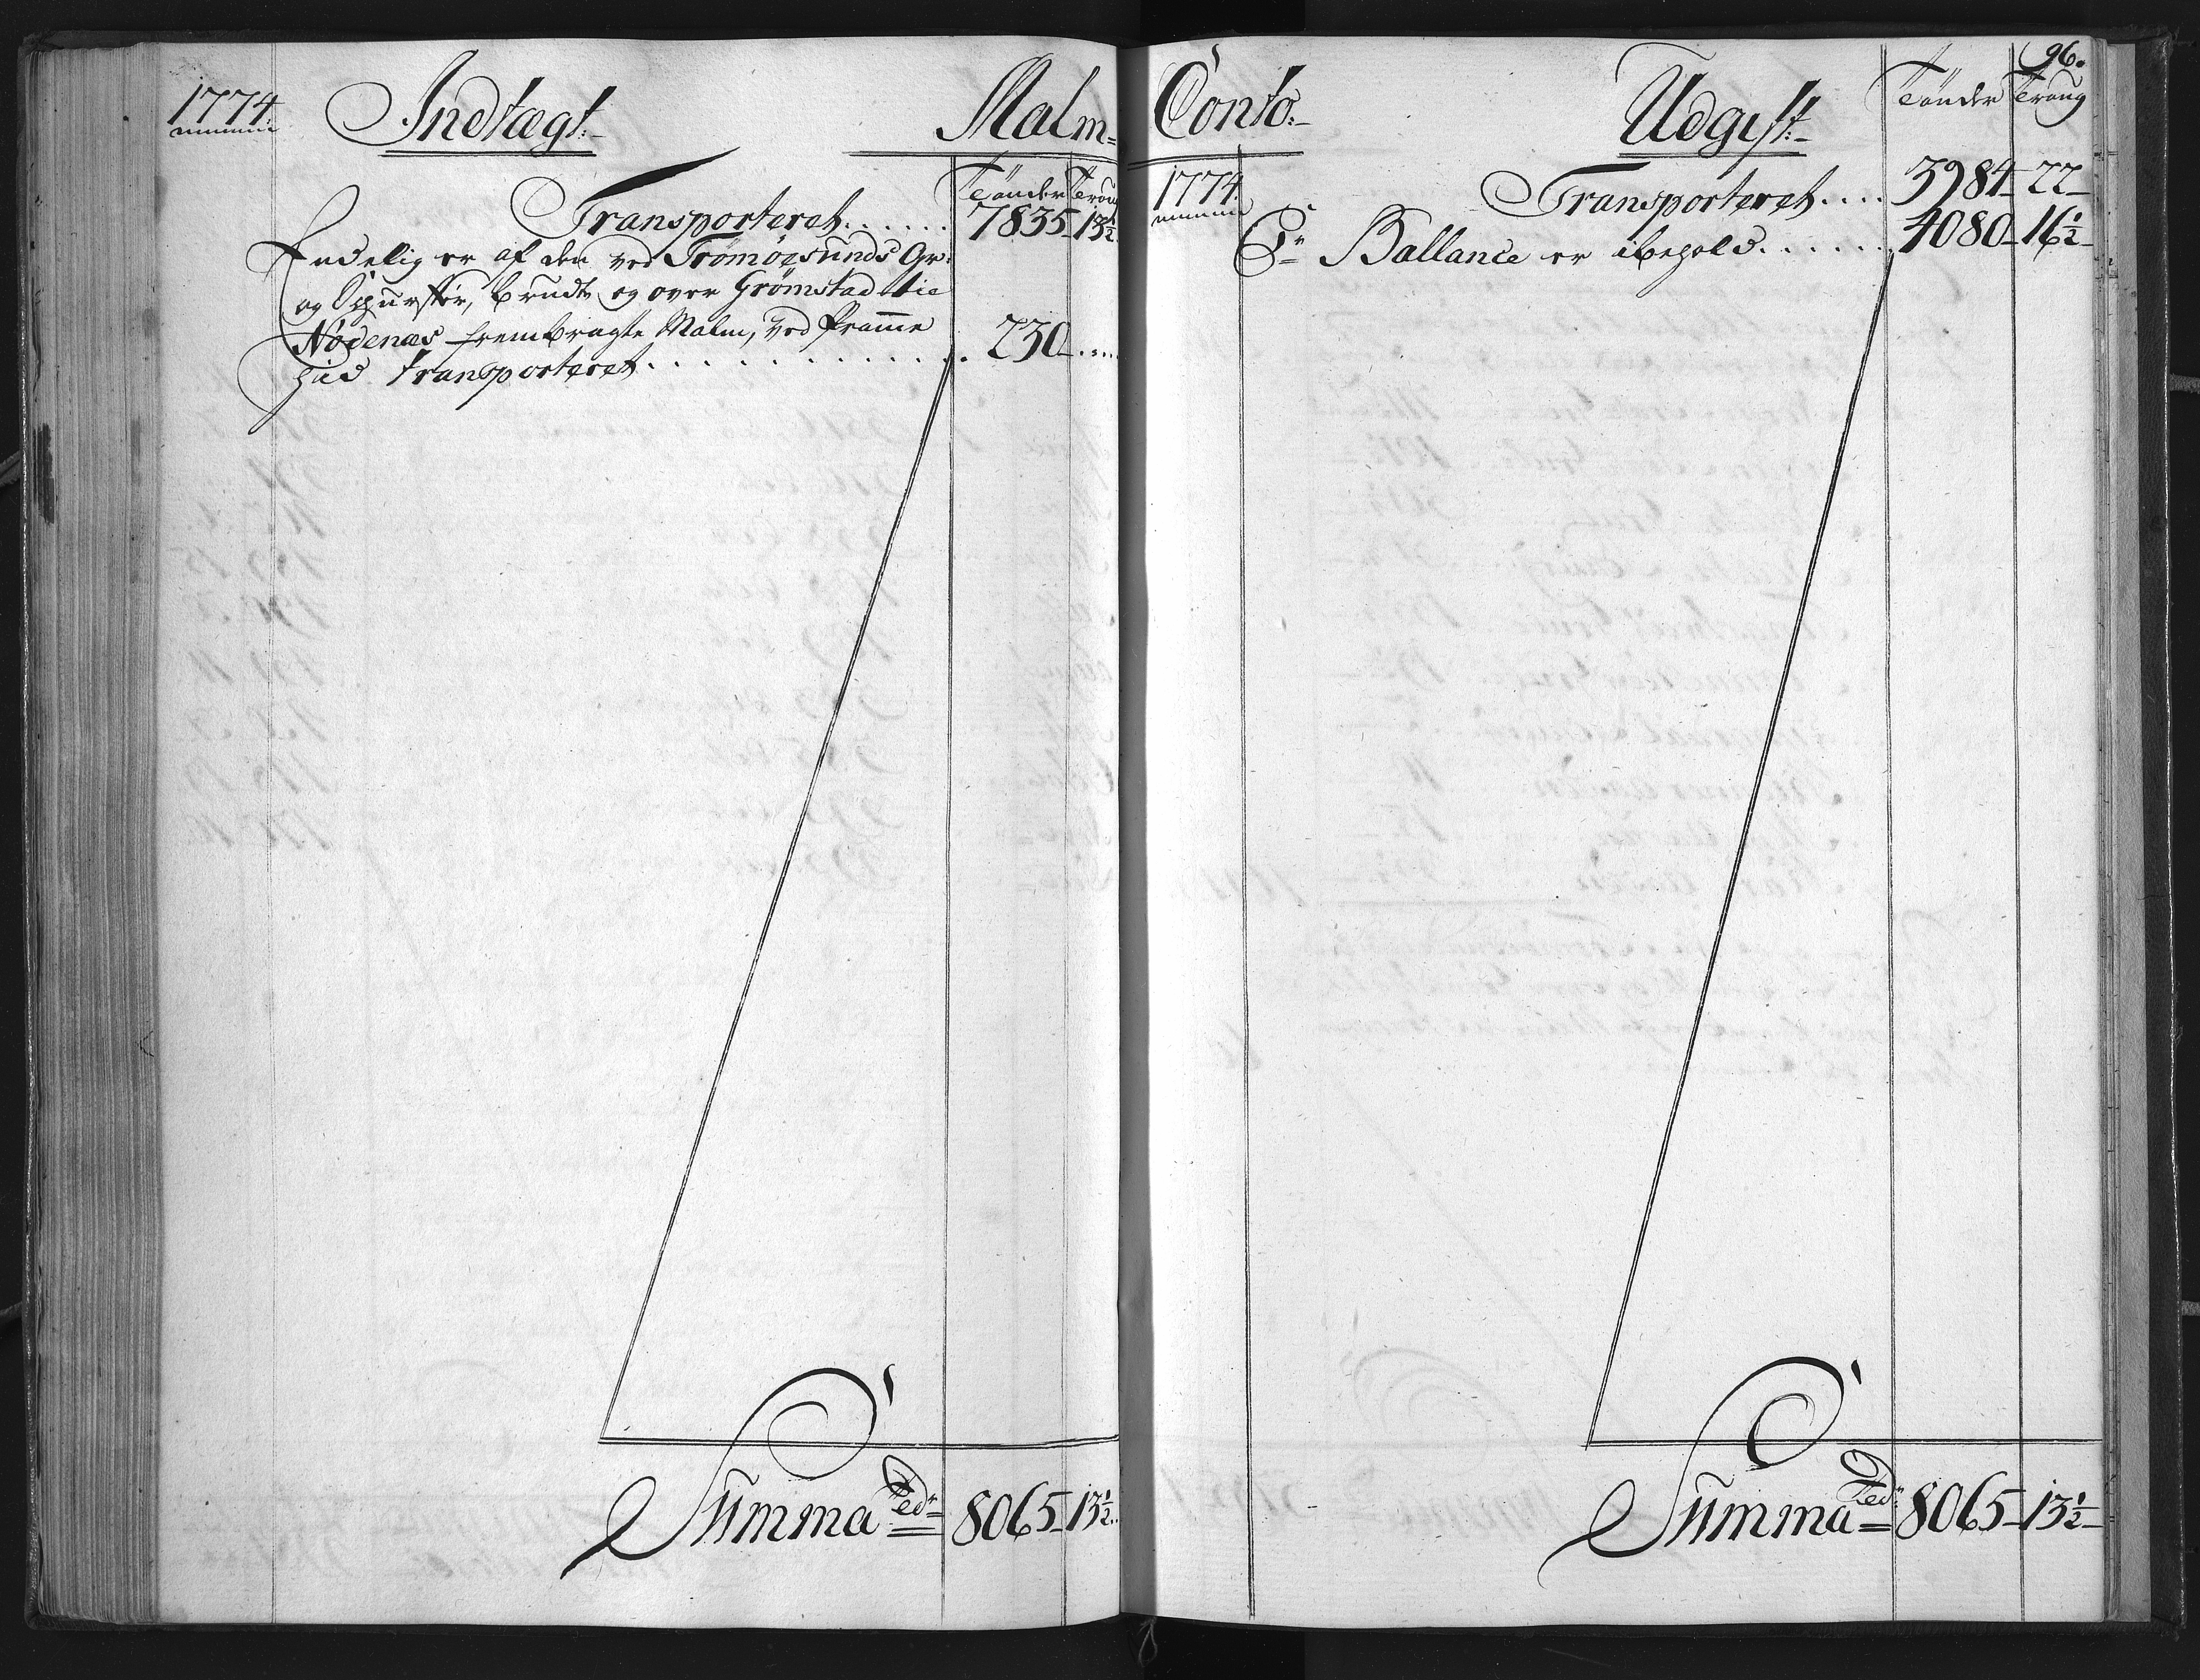 1774. Indtægt. Malm=
Tønder Traug
Transporteret . . . . . . 7835 13½
Endelig er af den ved Tromøesunds Gr:
og Skurffer, brudte og over Grømstad til
Nødenæs frembragte Malm, ved Pramme
hid transporteret . . . . . . . . . . . . . 230 - . . . .
Summa 8065 - 13½
96.
Conto. Udgift.
Tønder Traug
1774. Transporteret . . . . 3984 - 22 -
Pr Ballance er i behold . . . . . . 4080 - 16½ -
Summa 8065 - 13½ -